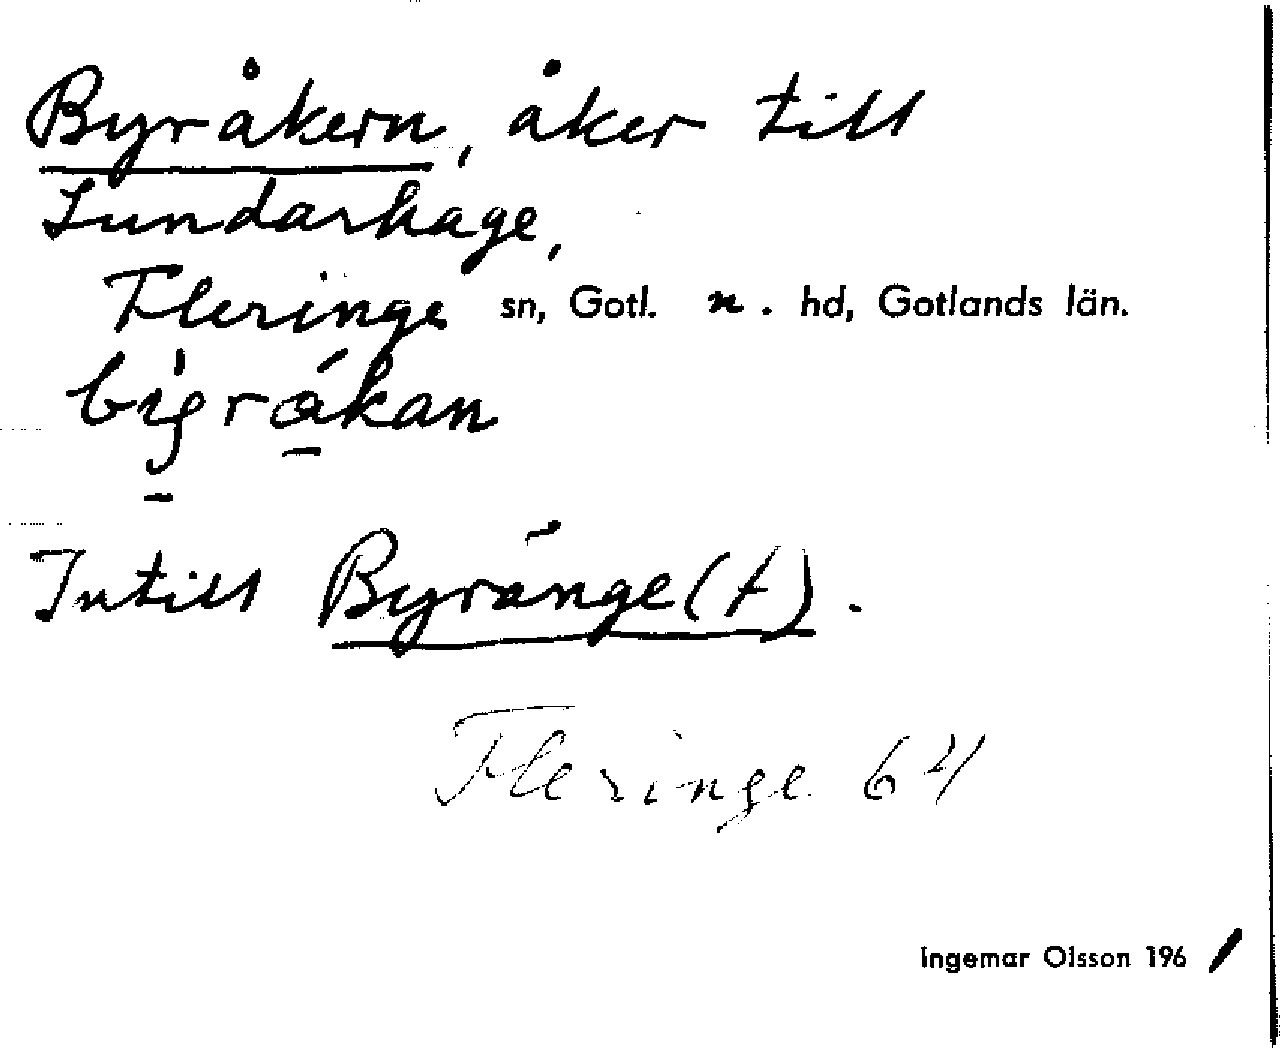 Byråkern, åker till
Lundarhage,
Fleringe sn, Gotl. n. hd, Gotlands län.
Intill Byränge(t).
Fleringe 64
Ingemar Olsson 196 1